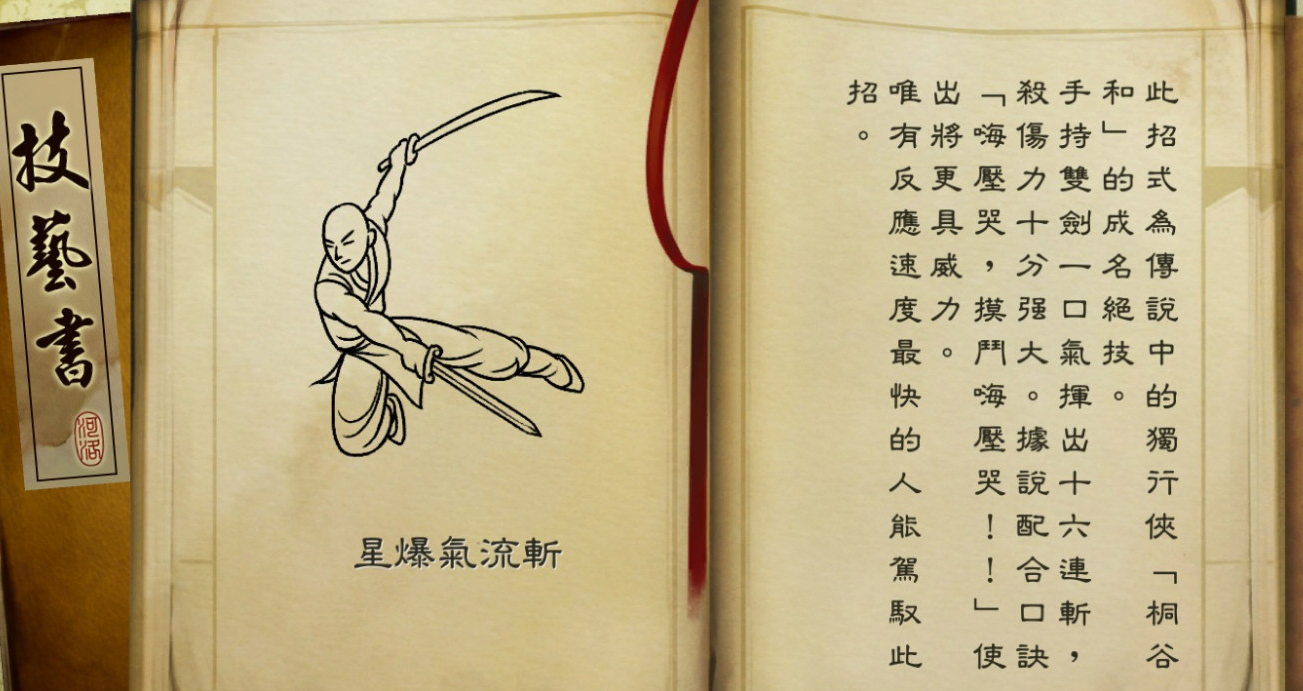 技藝書
河洛
星爆氣流斬
此招式為傳說中的獨行俠「桐谷
和」的成名絕技。
手持雙劍一口氣揮出十六連斬，
殺傷力十分強大。據說配合口訣
「嗨壓哭，摸鬥嗨壓哭！！」使
出將更具威力。
唯有反應速度最快的人能駕馭此
招。